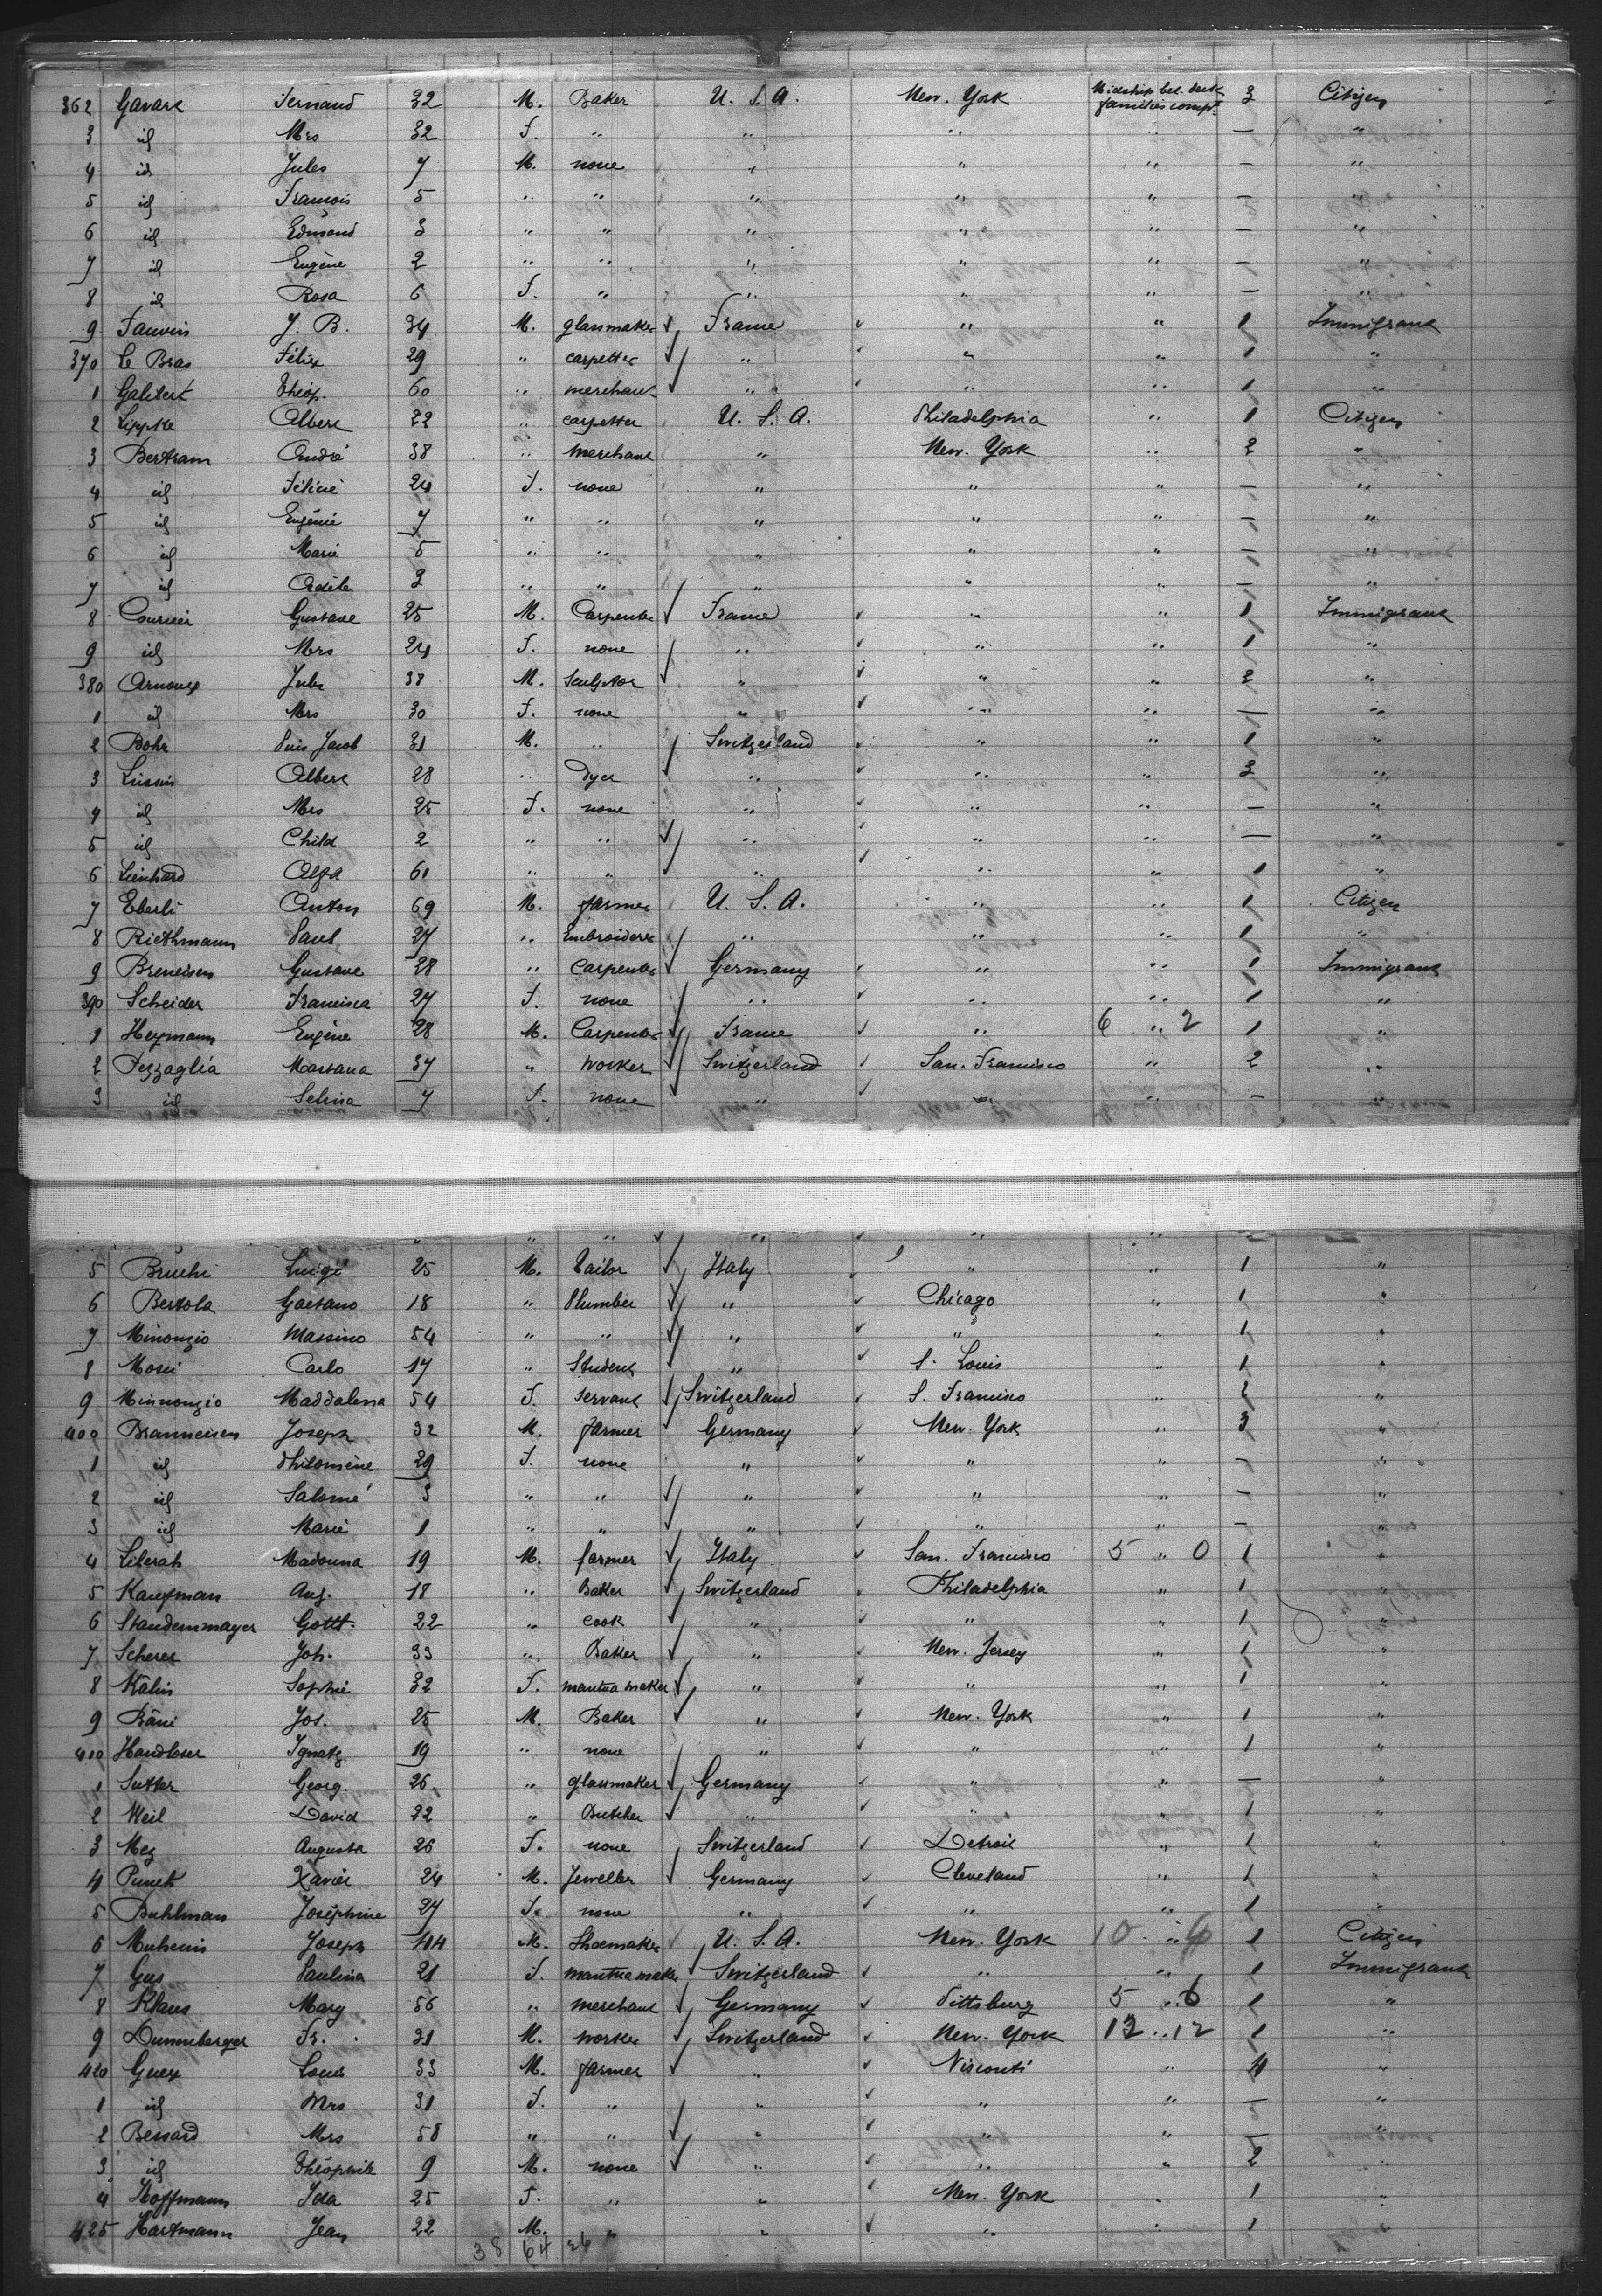 362 Gavard Fernand 32 M. Baker U. S. A. New. York Midship bet. deck families compt. 3 Citizen
3 id Mrs 32 F. " " " " — "
4 id Jules 7 M. none " " " — "
5 id Francois 5 " " " " " — "
6 id Edmond 3 " " " " " — "
7 id Eugène 2 " " " " " — "
8 id Rosa 6 F. " " " " — "
9 Fauvin J. B. 34 M. glassmaker France " " 1 Immigrant
370 Le Bras Félix 29 " carpetter " " " 1 "
1 Galitert Théop. 60 " merchant " " " 1 "
2 Lippke Albert 22 " carpetter U. S. A. Philadelphia " 1 Citizen
3 Bertram André 38 " merchant " New. York " 2 "
4 id Félicie 24 F. none " " " — "
5 id Eugénie 7 " " " " " — "
6 id Marie 5 " " " " " — "
7 id Adèle 3 " " " " " — "
8 Courier Gustave 25 M. Carpenter France " " 1 Immigrant
9 id Mrs 24 F. none " " " 1 "
380 Arnoux Jules 38 M. Sculptor " " " 2 "
1 id Mrs 30 F. none " " " — "
2 Bohr Luis Jacob 31 M. " Switzerland " " 1 "
3 Lüssin Albert 28 " Dyer " " " 3 "
4 id Mrs 25 F. none " " " — "
5 id Child 2 " " " " " — "
6 Lienhard Alfd 61 " " " " " 1 "
7 Eberli Anton 69 M. farmer U. S. A. " " 1 Citizen
8 Riethmann Paul 27 " Embroiderer " " " 1 "
9 Breneisen Gustave 28 " Carpenter Germany " " 1 Immigrant
390 Scheider Francisca 27 F. none " " " 1 "
1 Heymann Eugène 28 M. Carpenter France " 6 " 2 1 "
2 Pezzaglia Massana 37 " worker Switzerland San. Francisco " 2 "
3 id Selina 7 F. none " " " — "
" " " " "
5 Bruchi Luigi 25 M. Tailor Italy " " 1 "
6 Bertola Gaetano 18 " Plumber " Chicago " 1 "
7 Minonzio Massino 54 " " " " " 1 "
8 Mosei Carlo 17 " Student " S. Louis " 1 "
9 Minnonzio Maddalena 54 F. servant Switzerland S. Francisco " 2 "
400 Branneisen Joseph 32 M. farmer Germany New. York " 3 "
1 id Philomène 29 F. none " " " — "
2 id Salomé 3 " " " " " — "
3 id Marie 1 " " " " " — "
4 Liberah Madonna 19 M. farmer Italy San. Francisco 5 " 0 1 "
5 Kaufman Aug. 18 " Baker Switzerland Philadelphia " 1 "
6 Standemmayer Gottl. 22 " cook " " " 1 "
7 Scherer Joh. 33 " Baker " New. Jersey " 1 "
8 Kälin Sophie 32 F. mantua maker " " " 1 "
9 Bäni Jos. 25 M. Baker " New. York " 1 "
410 Handloser Ignatz 19 " none " " " 1 "
1 Sutter Georg. 26 " glassmaker Germany " " — "
2 Weil David 32 " Butcher " " " 1 "
3 Mez Augusta 26 F. none Switzerland Detroit " 1 "
4 Punet Xavier 24 M. Jeweller Germany Cleveland " 1 "
5 Buhlman Joséphine 27 F. none " " " 1 "
6 Muheim Joseph 44 M. Shoemaker U. S. A. New. York 10 " 6 1 Citizen
7 Gus Paulina 21 F. mantua maker Switzerland " " 1 Immigrant
8 Klaus Mary 56 " merchant Germany Pittsburg 5 " 6 1 "
9 Dunnenberger Fr. 31 M. worker Switzerland New. York 12 " 12 1 "
420 Guex Louis 33 M. farmer " Visconti " 4 "
1 id Mrs 31 F. " " " " — "
2 Bessard Mrs 58 " " " " " — "
3 id Théophile 9 M. none " " " 2 "
4 Hoffmann Ida 25 F. " " New. York " 1 "
425 Hartmann Jean 22 M. " " " " 1 "
38 64 26